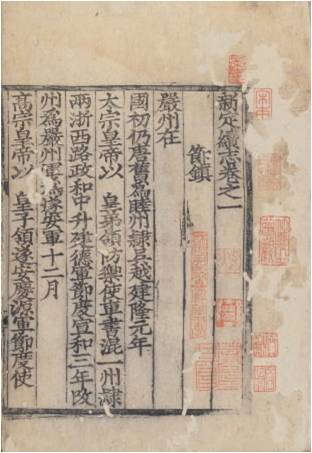 新定續志卷之一
節鎮
嚴州在
國初仍唐舊為睦州隸吳越建隆元年
太宗皇帝以 皇弟領防禦使軍書混一州隸
兩浙西路政和中升建德軍節度宣和三年改
州為嚴州軍為遂安軍十二月
高宗皇帝以 皇子領遂安慶源軍節度使